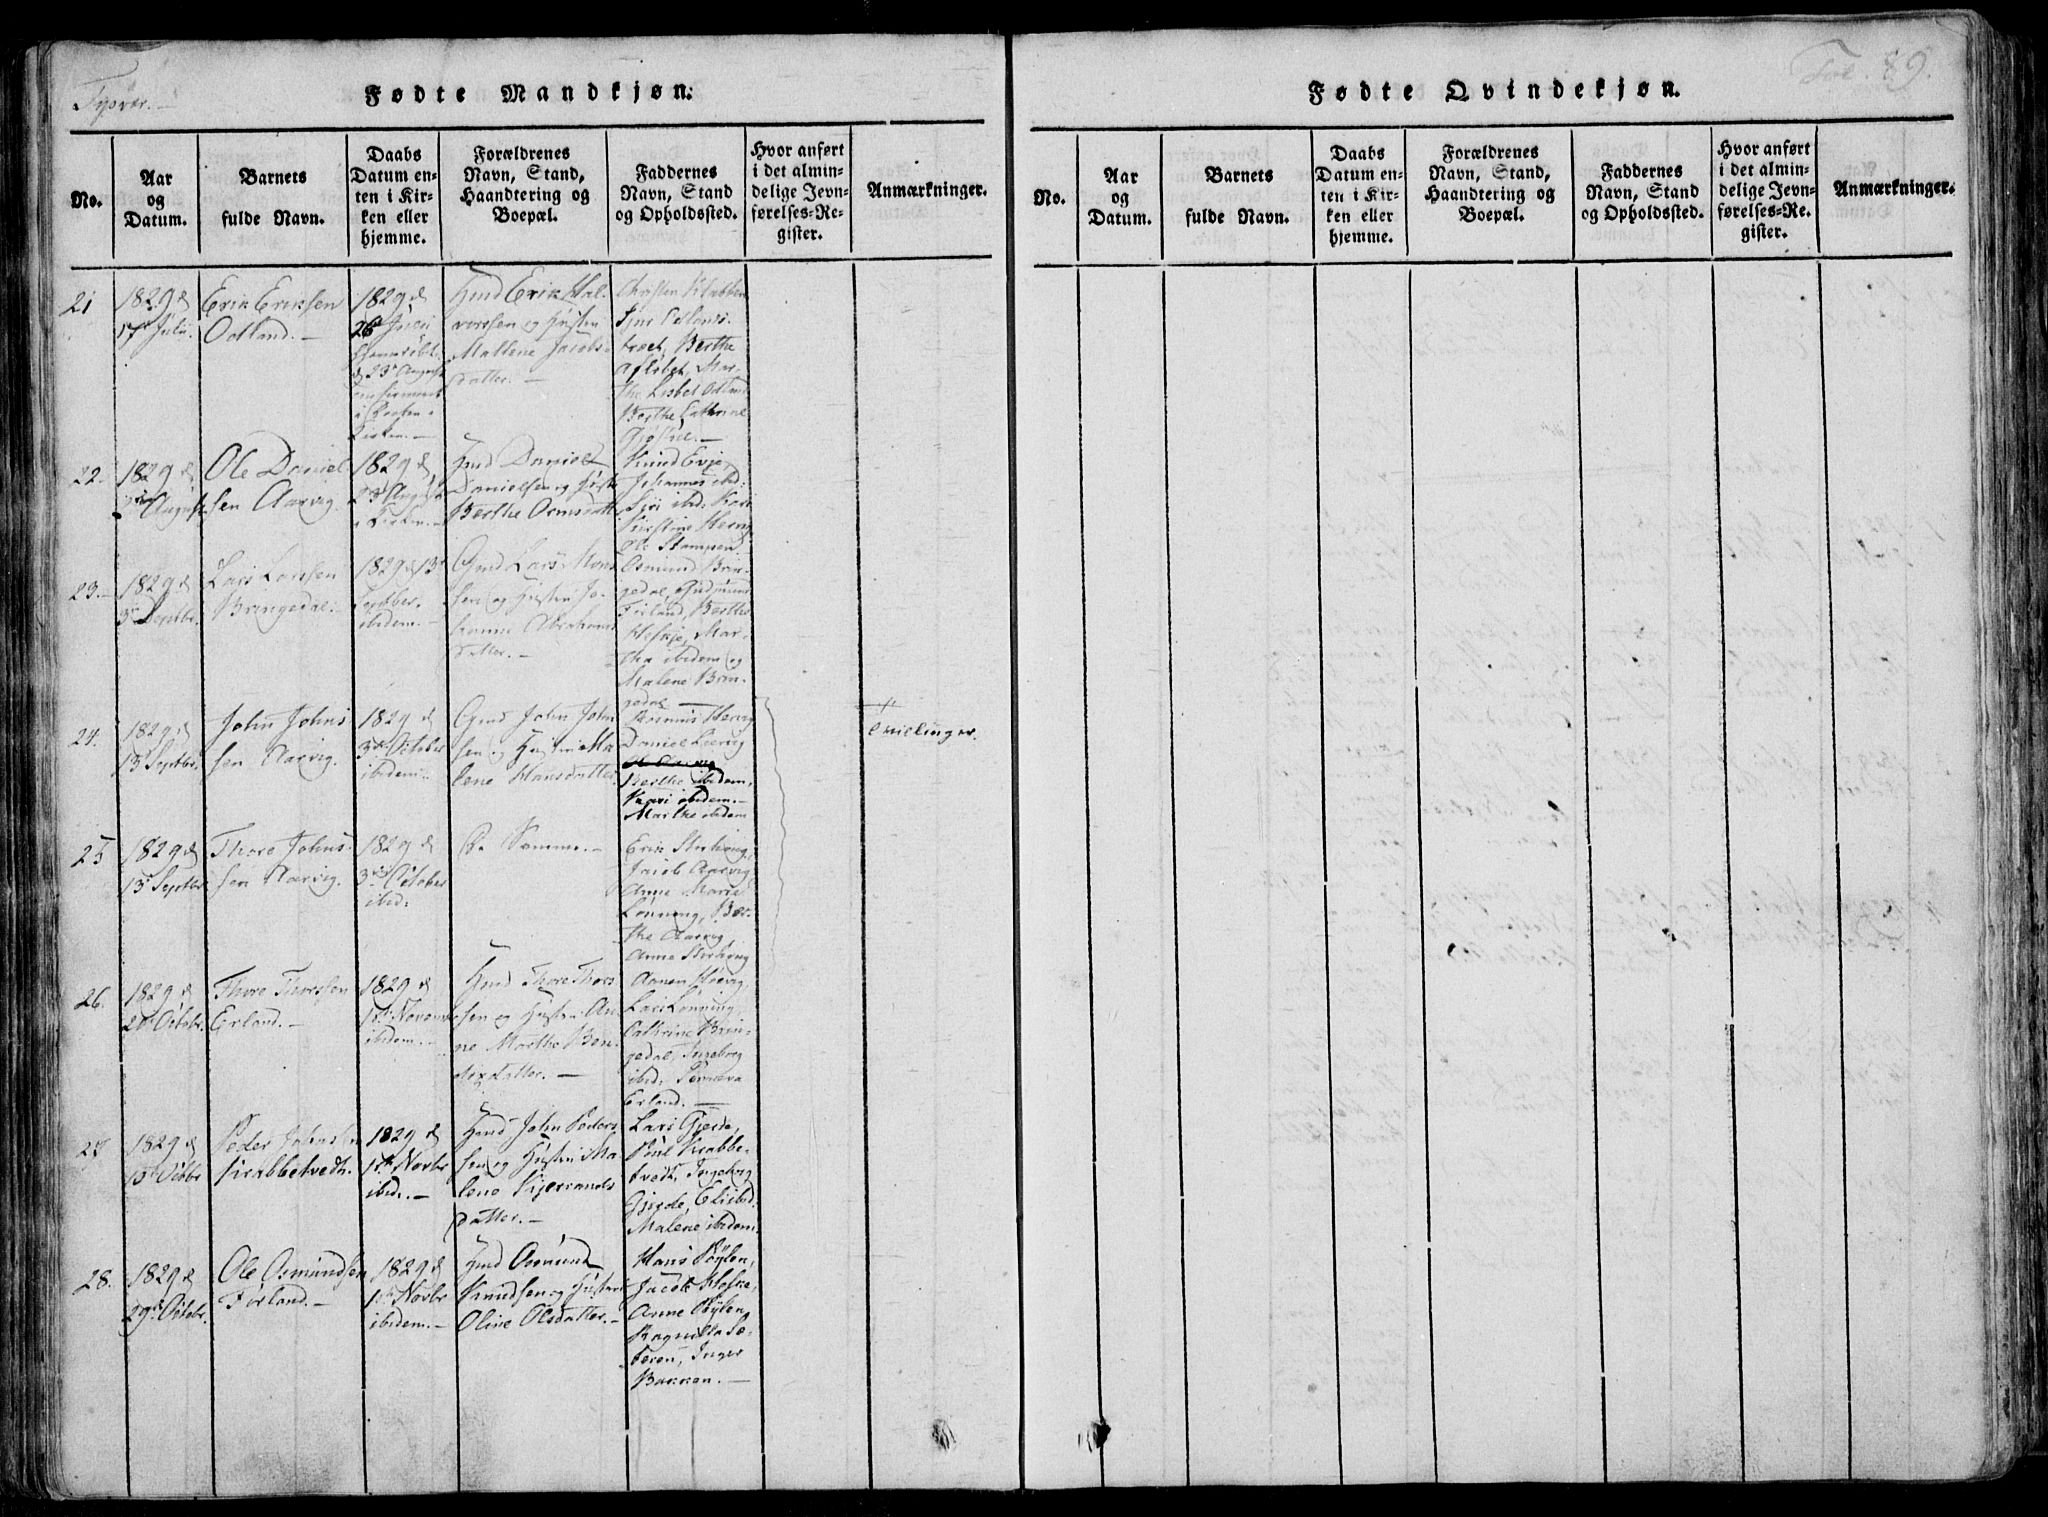 Tysvær.-
Fødte Mandkjøn.
No.
Aar
og
Datum.
Barnets
fulde Navn.
Daabs
Datum en-
ten i Kir-
ken eller
hjemme.
Forældrenes
Navn, Stand,
Haandtering og
Boepæl.
Faddernes
Navn, Stand
og Opholdssted.
Hvor anført
i det almin-
delige Jevn-
førelses-Re-
gister.
Anmærkninger.
21
1829 d
17 Julii
Erik Eriksen
Odland.-
1829 d
26 Julii
hjemmedøbt
d 23 August
confirmeret
i
Kirken.-
Gmd Erik Hal-
vorsen og Hustru
Mallene Jacobs-
datter.-
Christen
træet, Berthe
Mar-
the Lisbet Odland
Berthe Cathrine
22.
1829 d
August
Ole Daniel-
sen Aarvig.
1829 d
23 August
i Kirken.-
Gmd Daniel
Danielsen og Hustru
Berthe Ormsdatter
Knud Evje,
Johannes ibid:
Siri ibid: Kari
Kirstine Hervig
Ole Stampen
23.-
1829 d
3 Septbr.
Lars Larssen
Bringedal.-
1829 d 13
Septber.
ibidem.-
Gmd Lars Mons-
sen og Hustru Jo-
hanne Abrahams
datter.-
Osmund Brin-
gedal, Gudmund
Førland, Berthe
Heskje, Mar-
tha ibidem og
Malene Brin-
gedal.-
24.
1829 d
13 Septbr.
John Johns-
sen Aarvig.
1829 d
3 October
ibidem.-
Gmd John John-
sen og Hustru Ma-
lene Hansdatter.
Rasmus Hervig
Daniel Lervig
Berthe ibidem,
Kari ibidem.-
Marthe ibidem
+
Tvillinger.
25
1829 d
13 Septbr
Thore Johns-
sen Aarvig.
1829 d
3 October
ibid:
De Samme.-
Erik
Jacob Aarvig
Anne Marie
Lønning, Ber-
the Aarvig
Anne
26.
1829 d
20 Octobr.
Thore Thorsen
Erland.-
1829 d
1 Novembr
ibidem.-
Gmd Thore Thors-
sen og Hustru An-
ne Marthe Ben-
dixdatter.-
Lars Lønning,
Cathrine Brin-
gedal, Ingeborg
ibid:
Erland.-
27
1829 d
13 Octbr
Peder Johnsen
Krabbetvedt.
1829 d
1 Novbr
ibid:-
Gmd John Peders-
sen og Hustru Ma-
lene Kjerrands
datter.-
Lars Gjerde,
Poul Krabbe-
tvedt, Ingeborg
Gjerde, Eli ibid.
Malene ibidem.
28.
1829 d
29 Octobr.
Ole Osmundsen
Førland.-
1829 d
1 Novbr
ibidem.-
Gmd Osmund
Knudsen og Hustru
Oline Olsdatter.-
Hans Døylen,
Jacob Heskje,
Anne Døylen,
Ragnilla Sæ-
teren, Inger
Bakken.-
Fol. 89.
Fødte Qvindekjøn.
No.
Aar
og
Datum.
Barnets
fulde Navn.
Daabs
Datum en-
ten i Kir-
ken eller
hjemme.
Forældrenes
Navn, Stand,
Haandtering og
Boepæl.
Faddernes
Navn, Stand
og Opholdssted.
Hvor anført
i det almin-
delige Jevn-
førelses-Re-
gister.
Anmærkninger.